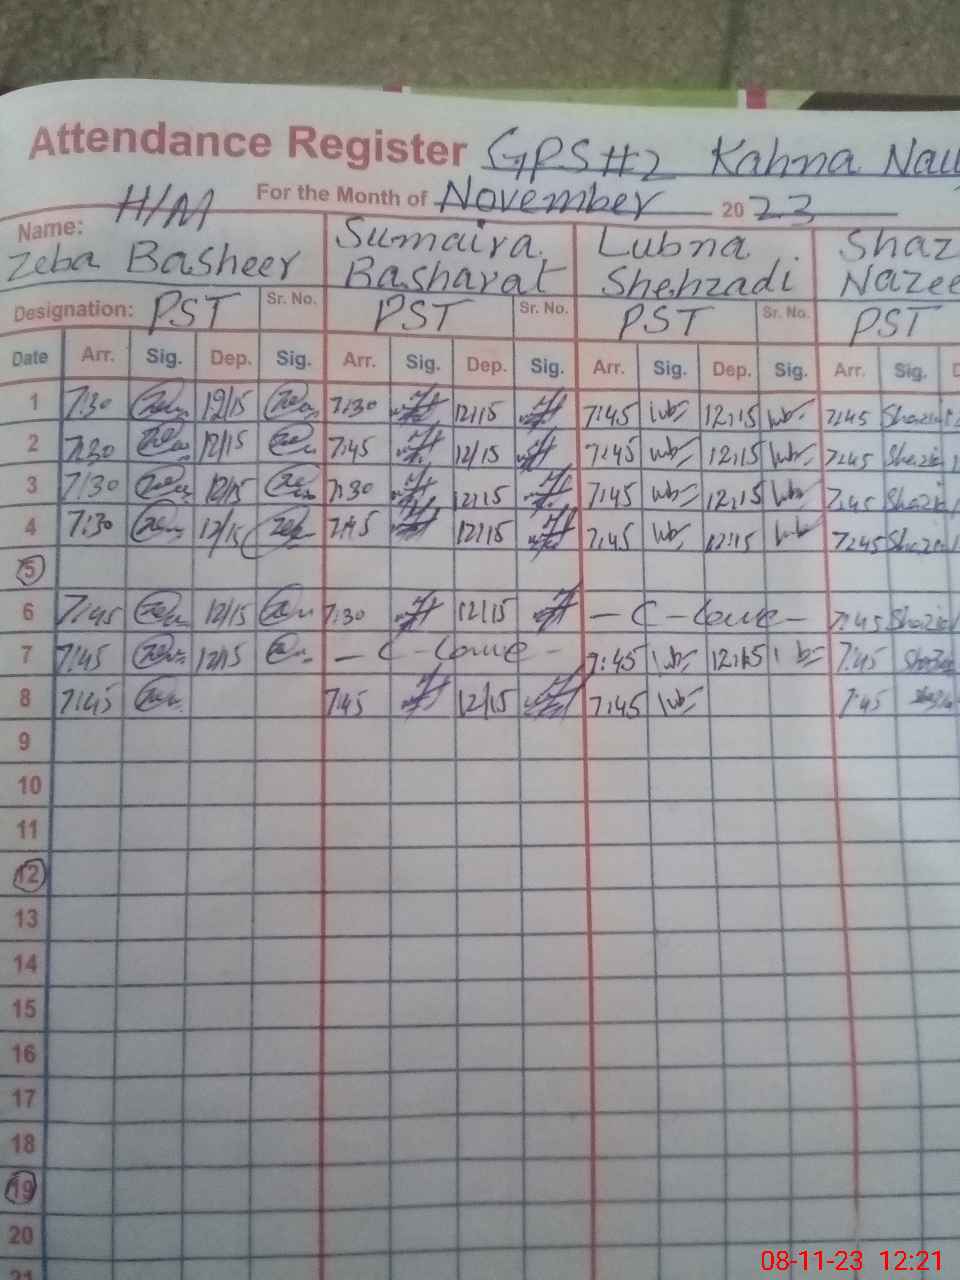 Attendance Register GPS#2 Kahna Nau
For the Month of November 2023
H/M
Name: Zeba Basheer Sumaira Basharat Lubna Shehzadi Shaz Nazee
Designation: PST Sr. No. PST Sr. No. PST Sr. No. PST
Date Arr. Sig. Dep. Sig. Arr. Sig. Dep. Sig. Arr. Sig. Dep. Sig. Arr. Sig. D
1 7:30 12/15 7:30 12:15 7:45 12:15 7:45
2 7:30 12/15 7:45 12/15 7:45 12:15 7:45
3 7:30 12/15 7:30 12:15 7:45 12:15 7:45
4 7:30 12/15 7:45 12:15 7:45 12:15 7:45
5
6 7:45 12/15 7:30 12/15 - C - Leave - 7:45
7 7:45 12:15 - C - Leave - 7:45 12:15 7:45
8 7:45 7:45 12/15 7:45 7:45
9
10
11
12
13
14
15
16
17
18
19
20
21
08-11-23 12:21